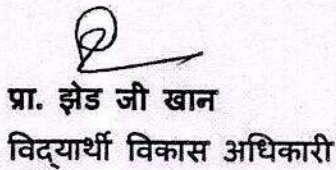 प्रा. झेड जी खान
विद्‌यार्थी विकास अधिकारी